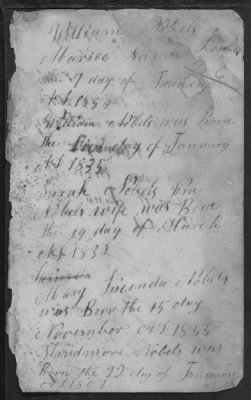 William Nobels
Married
the 7 day of January
AD 1854
William Nobels was born
the day of January
AD 1835
Sarah Nobels Wm
Nobels wife was Born
the 19 day of March
AD 1832
Mary Lucinda Nobels
was Born the 15 day
November AD 1855
Nobels was
Born the 22 day of January
AD 1857